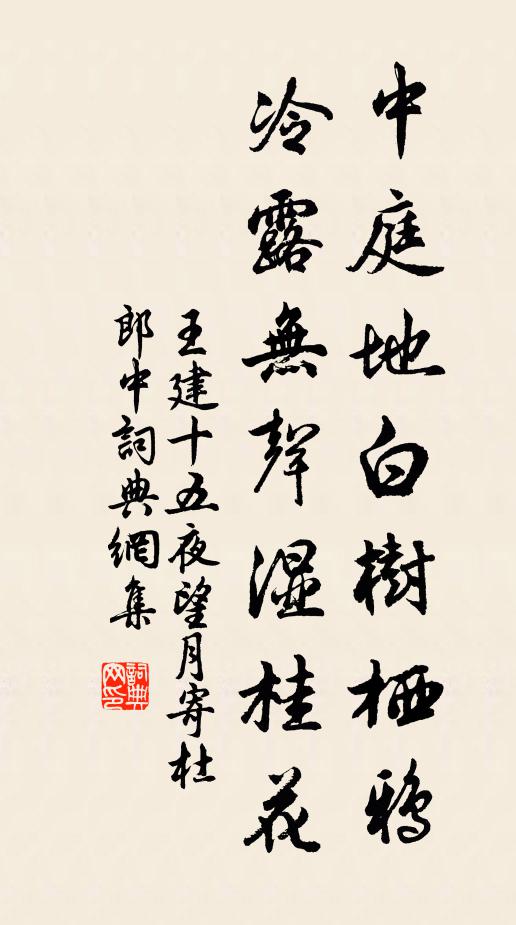 中庭地白樹栖鴉
冷露無聲濕桂花
王建十五夜望月寄杜
郎中詞典網集
詞典网印